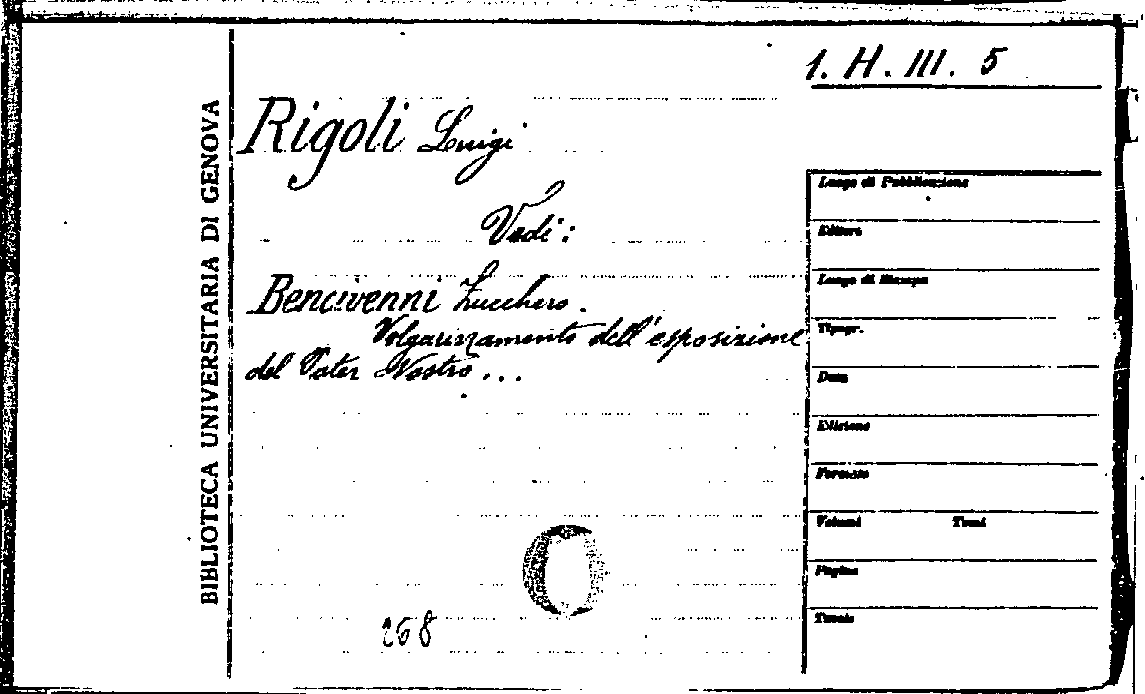 1. H. III. 5
BIBLIOTECA UNIVERSITARIA DI GENOVA
Rigoli Luigi
Vedi:
Bencivenni Zucchero.
Volgarizzamento dell'esposizione
del Pater Nostro...
268
Luogo di Pubblicazione
Editore
Luogo di Stampa
Tipogr.
Data
Edizione
Formato
Volumi Tomi
Pagine
Tavole